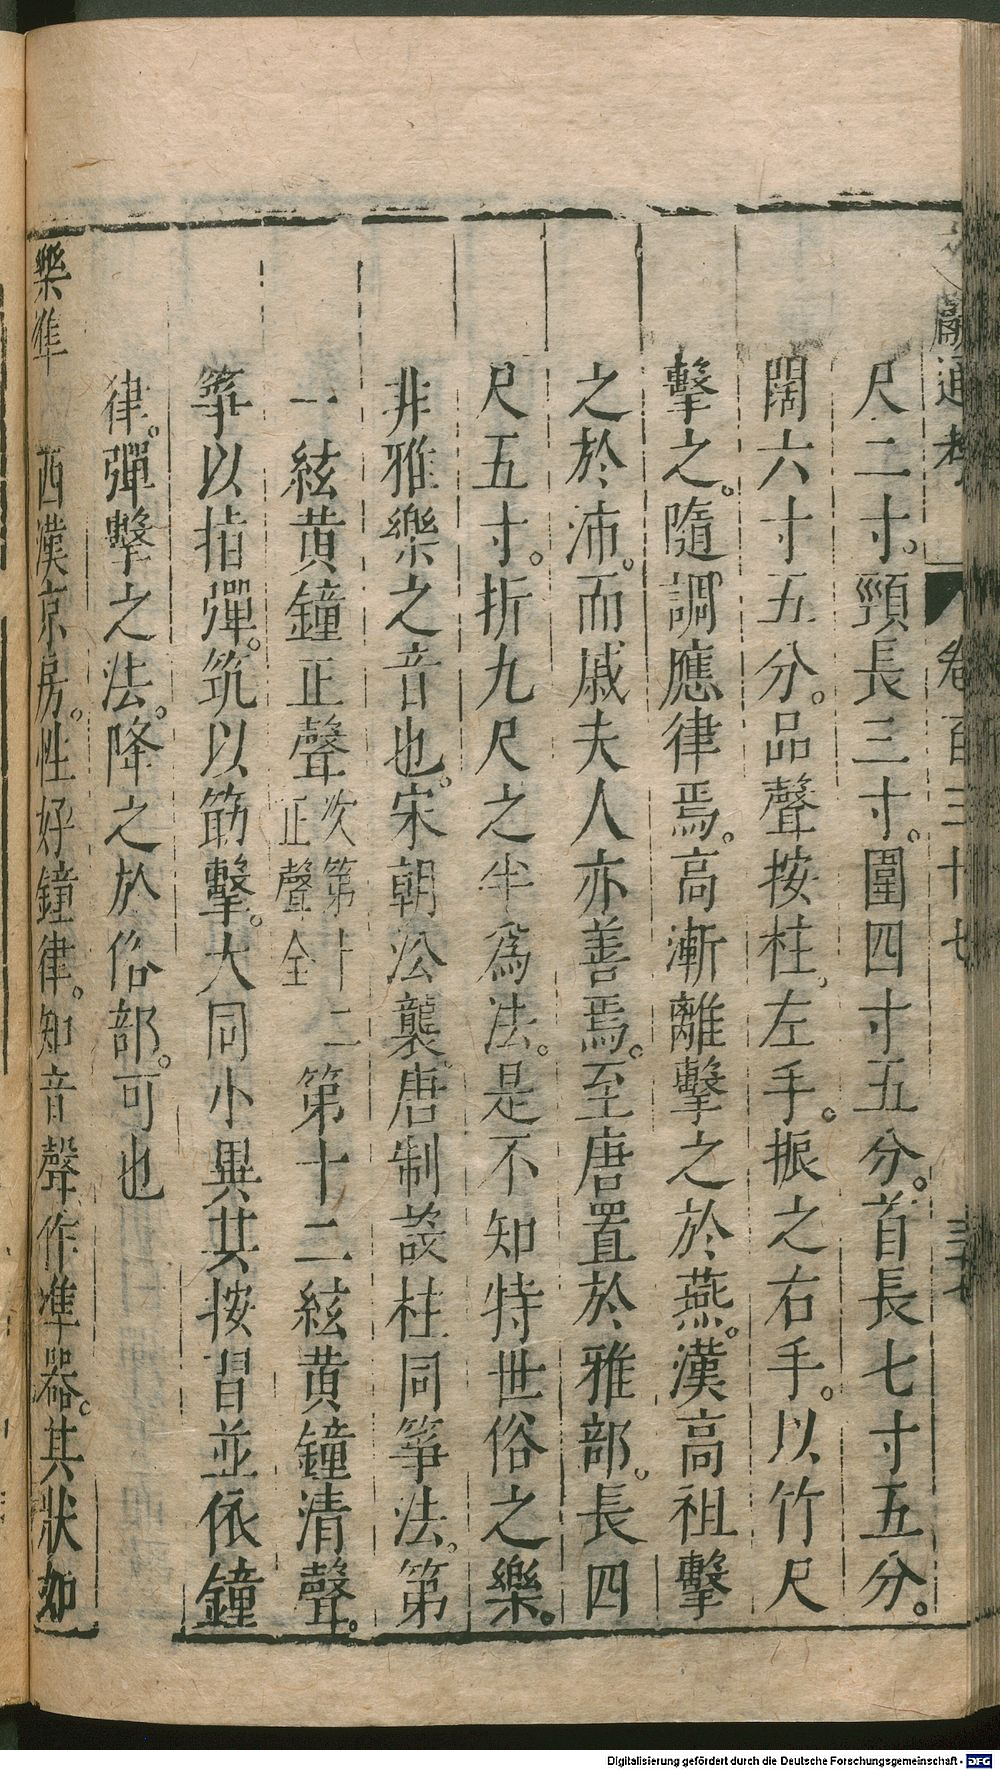 獻通考 卷百三十七 三十七
尺二寸。頸長三寸。圍四寸五分。首長七寸五分。
闊六寸五分。品聲按柱。左手。振之右手。以竹尺
擊之。隨調應律焉。高漸離擊之於燕。漢高祖擊
之於沛。而戚夫人亦善焉。至唐置於雅部。長四
尺五寸。折九尺之半爲法。是不知特世俗之樂。
非雅樂之音也。宋朝沿襲。唐制設柱同箏法。第
一絃黃鐘正聲次第十二正聲全第十二絃黃鐘清聲。
箏以指彈。筑以筯擊。大同小異其按習並依鐘
律。彈擊之法。降之於俗部。可也
樂準 西漢京房。性好鐘律。知音聲作準器。其狀如
Digitalisierung gefördert durch die Deutsche Forschungsgemeinschaft - DFG